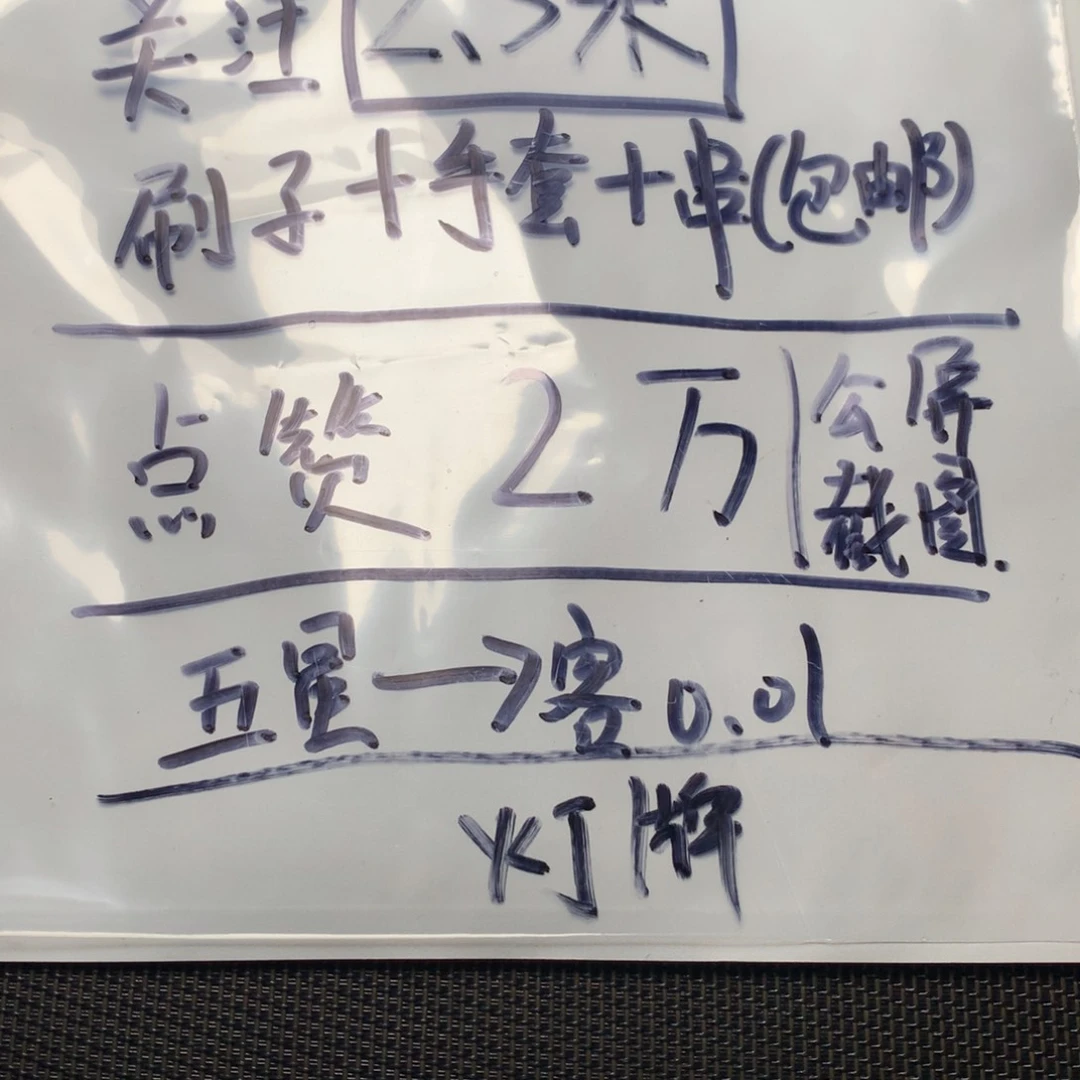 关注 2.5米
刷子+手套+串(包邮)
点赞 2万 公屏
截图.
五星→客0.01
灯牌